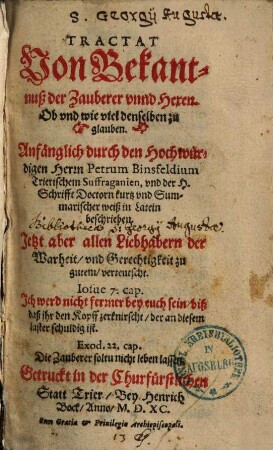 S. Georgij Augustæ.
TRACTAT
Von Bekant-
nuß der Zauberer vnnd Hexen.
Ob vnd wie viel denselben zu
glauben.
Anfänglich durch den Hochwür-
digen Herrn Petrum Binsfeldium
Trierischem Suffraganien, vnd der H.
Schrifft Doctorn kurtz vnd Sum-
marischer weiß in Latein
beschrieben.
Bibliothecæ S. Georgij Augustæ
Jetzt aber allen Liebhabern der
Warheit/ vnd Gerechtigkeit zu
gutem/ verteuscht.
Iosue 7. cap.
Ich werd nicht ferrner bey euch sein/ biß
daß ihr den Kopff zerknirscht/ der an diesem
laster schuldig ist.
Exod. 22. cap.
Die Zauberer soltu nicht leben lassen
Getruckt in der Churfürstlichen
Statt Trier/ Bey Henrich
Bock/ Anno/ M. D. XC.
Cum Gratia & Priuilegio Archiepiscopali.
KREISBIBLIOTHEK
IN
AUGSBURG.